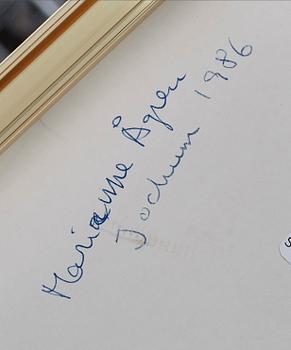 Marianne Ågren
Jochum 1986